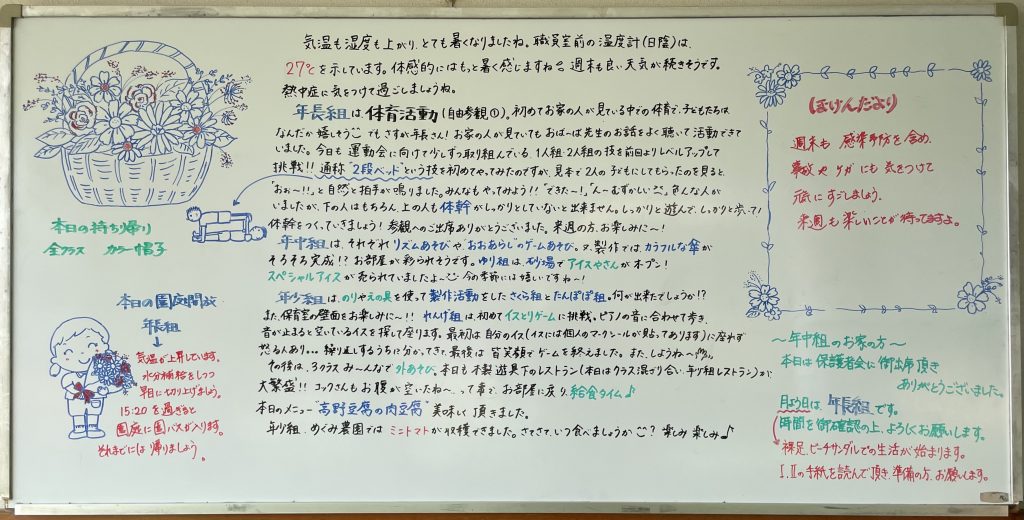 気温も湿度も上がり、とても暑くなりましたね。職員室前の温度計(日陰)は、
27℃を示しています。体感的にはもっと暑く感じますね 週末も良い天気が続きそうです。
熱中症に気をつけて過ごしましょうね。
年長組は、体育活動(自由参観①)。初めてお家の人が見ている中での体育で、子どもたちは
なんだか嬉しそう でもさすが年長さん!お家の人が見ていても おばーば先生のお話をよく聴いて活動できて
いました。今日も運動会に向けて少しずつ取り組んでいる、1人組・2人組の技を前回よりレベルアップして
挑戦!! 通称“2段ベッド”という技を初めてやってみたのですが、見本で2人の子どもにしてもらったのを見ると、
「おぉ〜!!」と自然と拍手が鳴りました。みんなもやってみよう!!「できたー!」「んーむずかしい」色んな人が
いましたが、下の人はもちろん、上の人も体幹がしっかりとしていないと出来ません。しっかりと遊んで、しっかりと歩いて!
体幹をつくっていきましょう!参観へのご出席ありがとうございました。来週の方、お楽しみに〜!
年中組は、それぞれリズムあそびや“おおあらし”のゲームあそび。又、製作では、カラフルな傘が
そろそろ完成!?お部屋が彩られそうです。ゆり組は、砂場でアイスやさんがオープン!
スペシャルアイスが売られていましたよ〜 今の季節には嬉しいですね〜!
年少組は、のりやえの具を使って製作活動をしたさくら組とたんぽぽ組。何が出来たでしょうか!?
また、保育室の壁面をお楽しみに〜!! れんげ組は、初めてイスとりゲームに挑戦。ピアノの音に合わせて歩き、
音が止まると空いているイスを探して座ります。最初は自分のイス(イスには個人のマークシールが貼ってあります)に座れず
怒る人あり…。繰り返しするうちに分かってきて、最後は皆笑顔でゲームを終えました。また、しようね〜
その後は、3クラスみ〜んなで外あそび。本日も木製遊具下のレストラン(本日はクラス混ざり合い年少組レストラン)が
大繁盛!! コックさんもお腹が空いたね〜。って事で、お部屋に戻り、給食タイム♪
本日のメニュー“高野豆腐の肉豆腐”美味しく頂きました。
年少組、めぐみ農園ではミニトマトが収穫できました。さてさて、いつ食べましょうか?楽しみ楽しみ♪
本日の持ち帰り
全クラス カラー帽子
本日の園庭開放
年長組
↓
気温が上昇しています。
水分補給をしつつ
早目に切り上げましょう。
15:20を過ぎると
園庭に園バスが入ります。
それまでには帰りましょう。
ほけんだより
週末も 感染予防を含め、
事故やケガにも気をつけて
元気にすごしましょう。
来週も楽しいことが待ってますよ。
〜年中組のお家の方〜
本日は保護者会に御出席頂き
ありがとうございました。
月よう日は、年長組です。
時間を御確認の上、よろしくお願いします。
裸足、ビーチサンダルでの生活が始まります。
Ⅰ.Ⅱの手紙を読んで頂き、準備の方、お願いします。